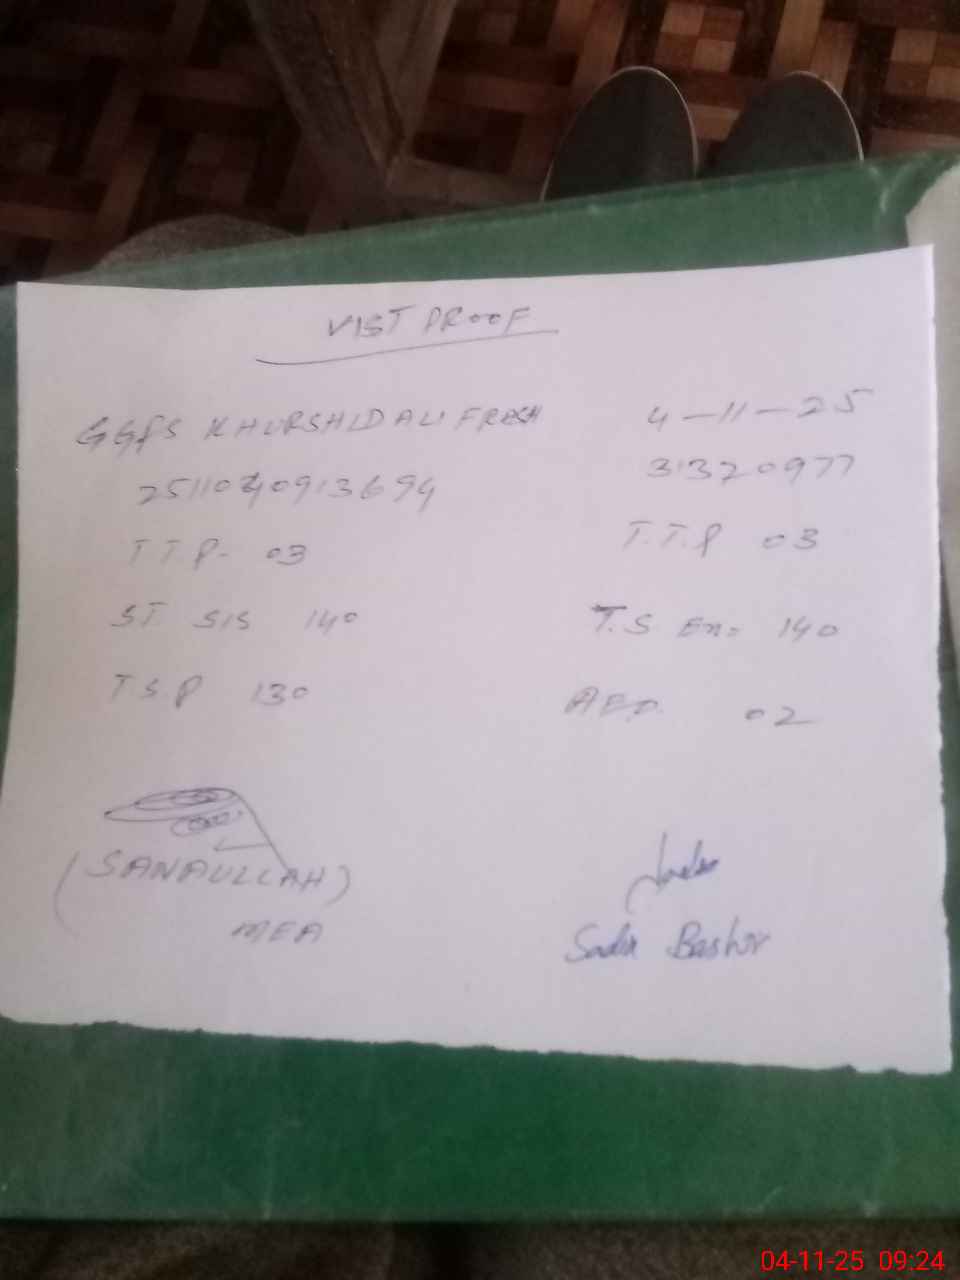 VIST PROOF
GGPS KHURSHID ALI FRESH 4-11-25
2511040913694 31320977
TTP- 03 T.T.P 03
ST SIS 140 T.S En= 140
T.S.P 130 AEP. 02
(SANAULLAH)
MEA
Bashir
04-11-25 09:24